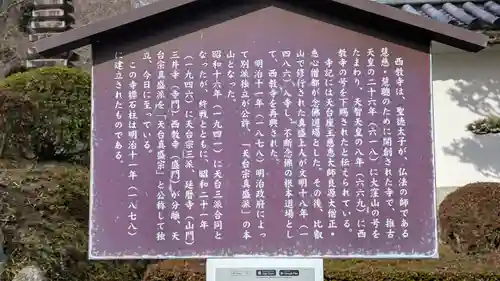 西教寺は、聖徳太子が、仏法の師である
慧慈・慧聰のために開創された寺で、推古
天皇の二十六年(六一八)に大窪山の号を
たまわり、天智天皇の八年(六六九)に西
教寺の号を下賜されたと伝えられている。
寺記には天台座主慈恵大師良源大僧正・
恵心僧都が念佛道場とした。その後、比叡
山で修行された真盛上人が文明十八年(一
四八六)入寺し、不断念佛の根本道場とし
て、西教寺を再興された。
明治十一年(一八七八)明治政府によっ
て別派独立が公許、「天台宗真盛派」の本
山となった。
昭和十六年(一九四一)に天台三派合同と
なったが、終戦とともに、昭和二十一年
(一九四六)に天台宗三派 延暦寺(山門)
三井寺(寺門)西教寺(盛門)が分離、天
台宗真盛派を「天台真盛宗」と公称して独
立、今日に至っている。
この寺標石柱は明治十一年(一八七八)
に建立されたものである。